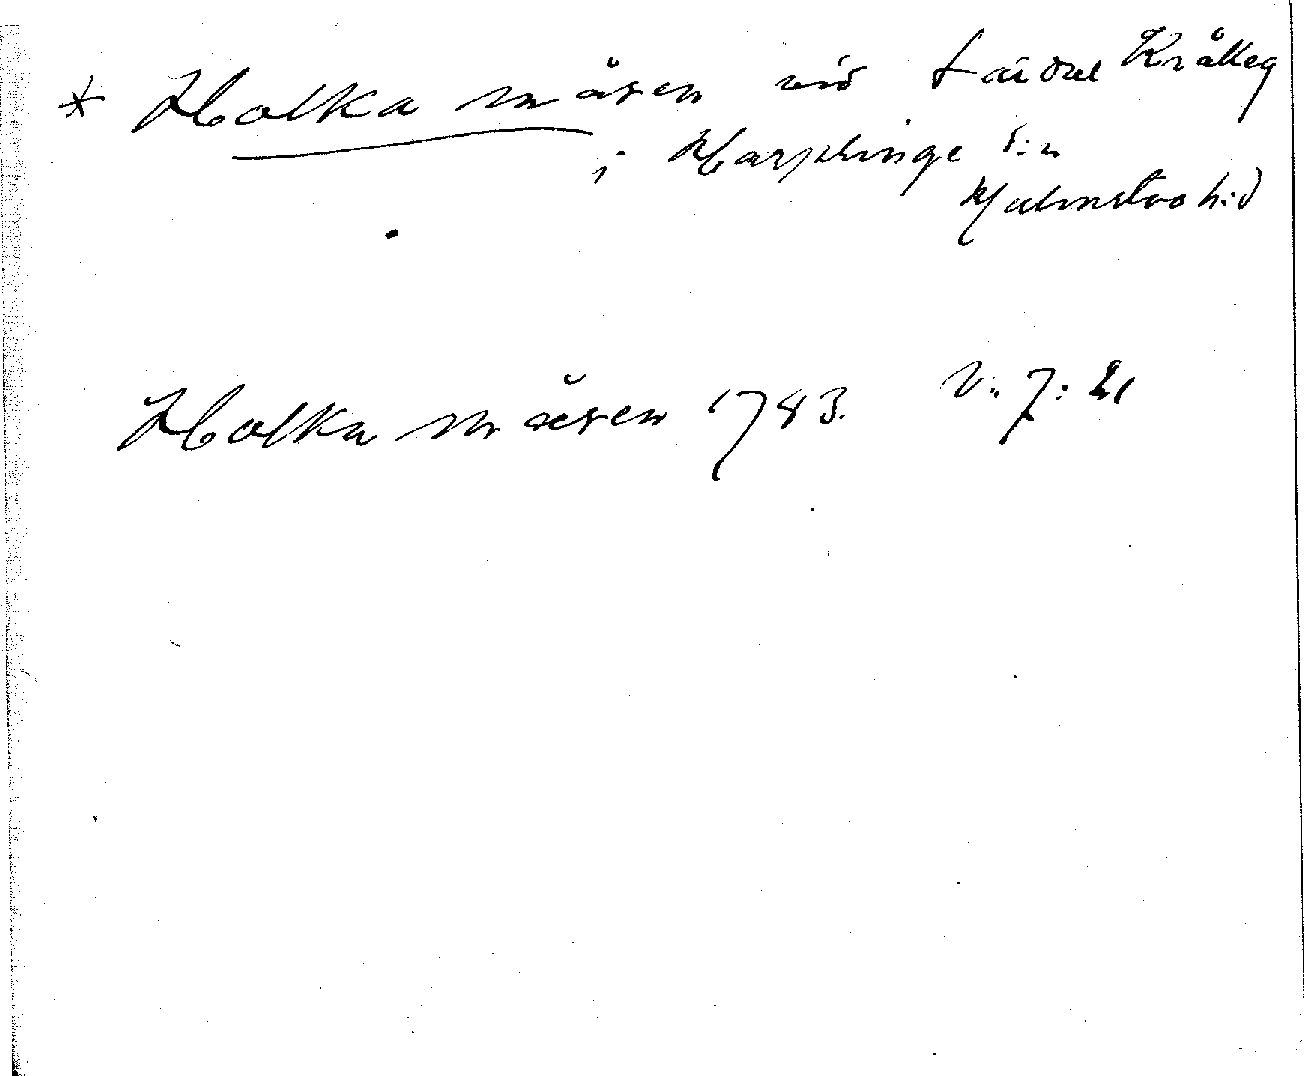 * Holka måsen vid Lördel Kråkeg
i Harplinge s:n
Halmstad h:d
Holka måsen 1783. V. 7: 21